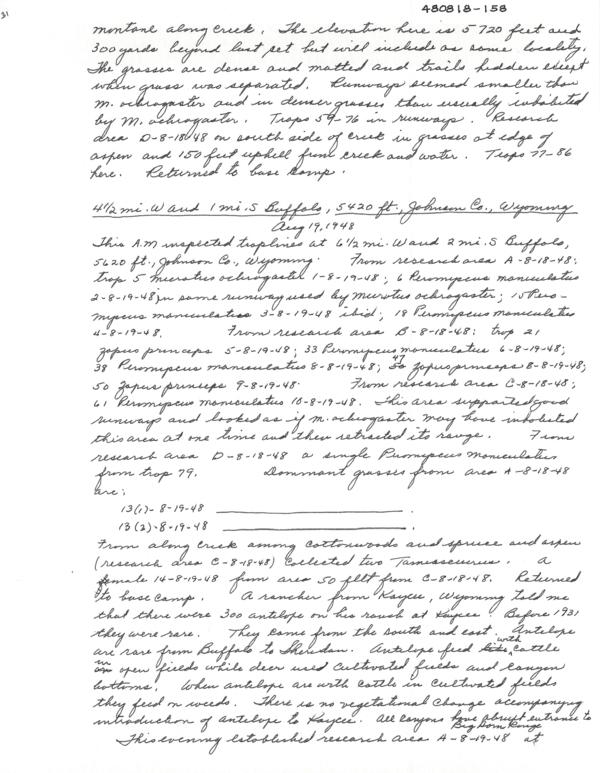 480818-158
31
montane along creek. The elevation here is 5720 feet and
300 yards beyond last set but will include as same locality.
The grasses are dense and matted and trails hidden except
when grass was separated. Runways seemed smaller than
M. ochrogaster and in denser grasses than usually inhabited
by M. ochrogaster. Traps 59-76 in runways. Research
area D-8-18-48 on south side of creek in grasses at edge of
aspen and 150 feet uphill from creek and water. Traps 77-86
here. Returned to base camp.
4 1/2 mi. W and 1 mi. S Buffalo, 5420 ft., Johnson Co., Wyoming
Aug 19, 1948
This A.M inspected traplines at 6 1/2 mi. W and 2 mi. S Buffalo,
5620 ft., Johnson Co., Wyoming. From research area A-8-18-48:
trap 5 Microtus ochrogaster 1-8-19-48; 6 Peromyscus maniculatus
2-8-19-48 in same runway used by Microtus ochrogaster; 15 Pero-
myscus maniculatus 3-8-19-48 ibid; 18 Peromyscus maniculatus
4-8-19-48. From research area B-8-18-48: trap 21
Zapus princeps 5-8-19-48; 33 Peromyscus maniculatus 6-8-19-48;
38 Peromyscus maniculatus 8-8-19-48; 47 Zapus princeps 8-8-19-48;
50 Zapus princeps 9-8-19-48. From research area C-8-18-48;
61 Peromyscus maniculatus 10-8-19-48. This area supported good
runways and looked as if M. ochrogaster may have inhabited
this area at one time and then retracted its range. From
research area D-8-18-48 a single Peromyscus maniculatus
from trap 79. Dominant grasses from area A-8-18-48
are:
13(1)-8-19-48 .
13(2)-8-19-48 .
From along creek among cottonwoods and spruce and aspen
(research area C-8-18-48) collected two Tamiasciurus. A
female 14-8-19-48 from area 50 feet from C-8-18-48. Returned
to base camp. A rancher from Kaycee, Wyoming told me
that there were 300 antelope on his ranch at Kaycee. Before 1931
they were rare. They came from the south and east. Antelope
are rare from Buffalo to Sheridan. Antelope feed with cattle
in open fields while deer used cultivated fields and canyon
bottoms. When antelope are with cattle in cultivated fields
they feed on weeds. There is no vegetational change accompanying
introduction of antelope to Kaycee. All canyons have abrupt entrance to
Big Horn Range
This evening established research area A-8-19-48 at